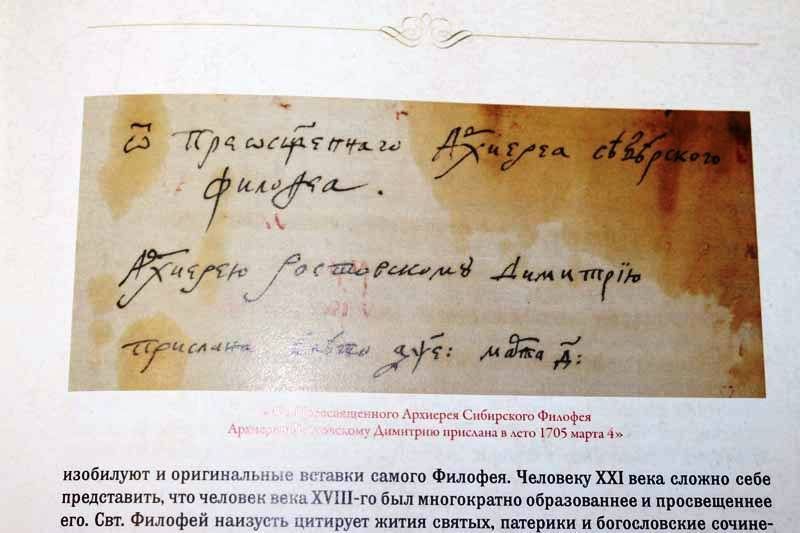 ѿ преѡсщ҃еннаго Архиереа сибѣрского
филоѳеа.
Архиерею ростовскомꙋ Димитрїю
прислана в лѣто ҂аѱ҃е: марта д҃:
Преосвященного Архиерея Сибирского Филофея
Димитрию прислана в лето 1705 марта 4»
изобилуют и оригинальные вставки самого Филофея. Человеку XXI века сложно себе
представить, что человек века XVIII-го был многократно образованнее и просвещеннее
его. Свт. Филофей наизусть цитирует жития святых, патерики и богословские сочине-